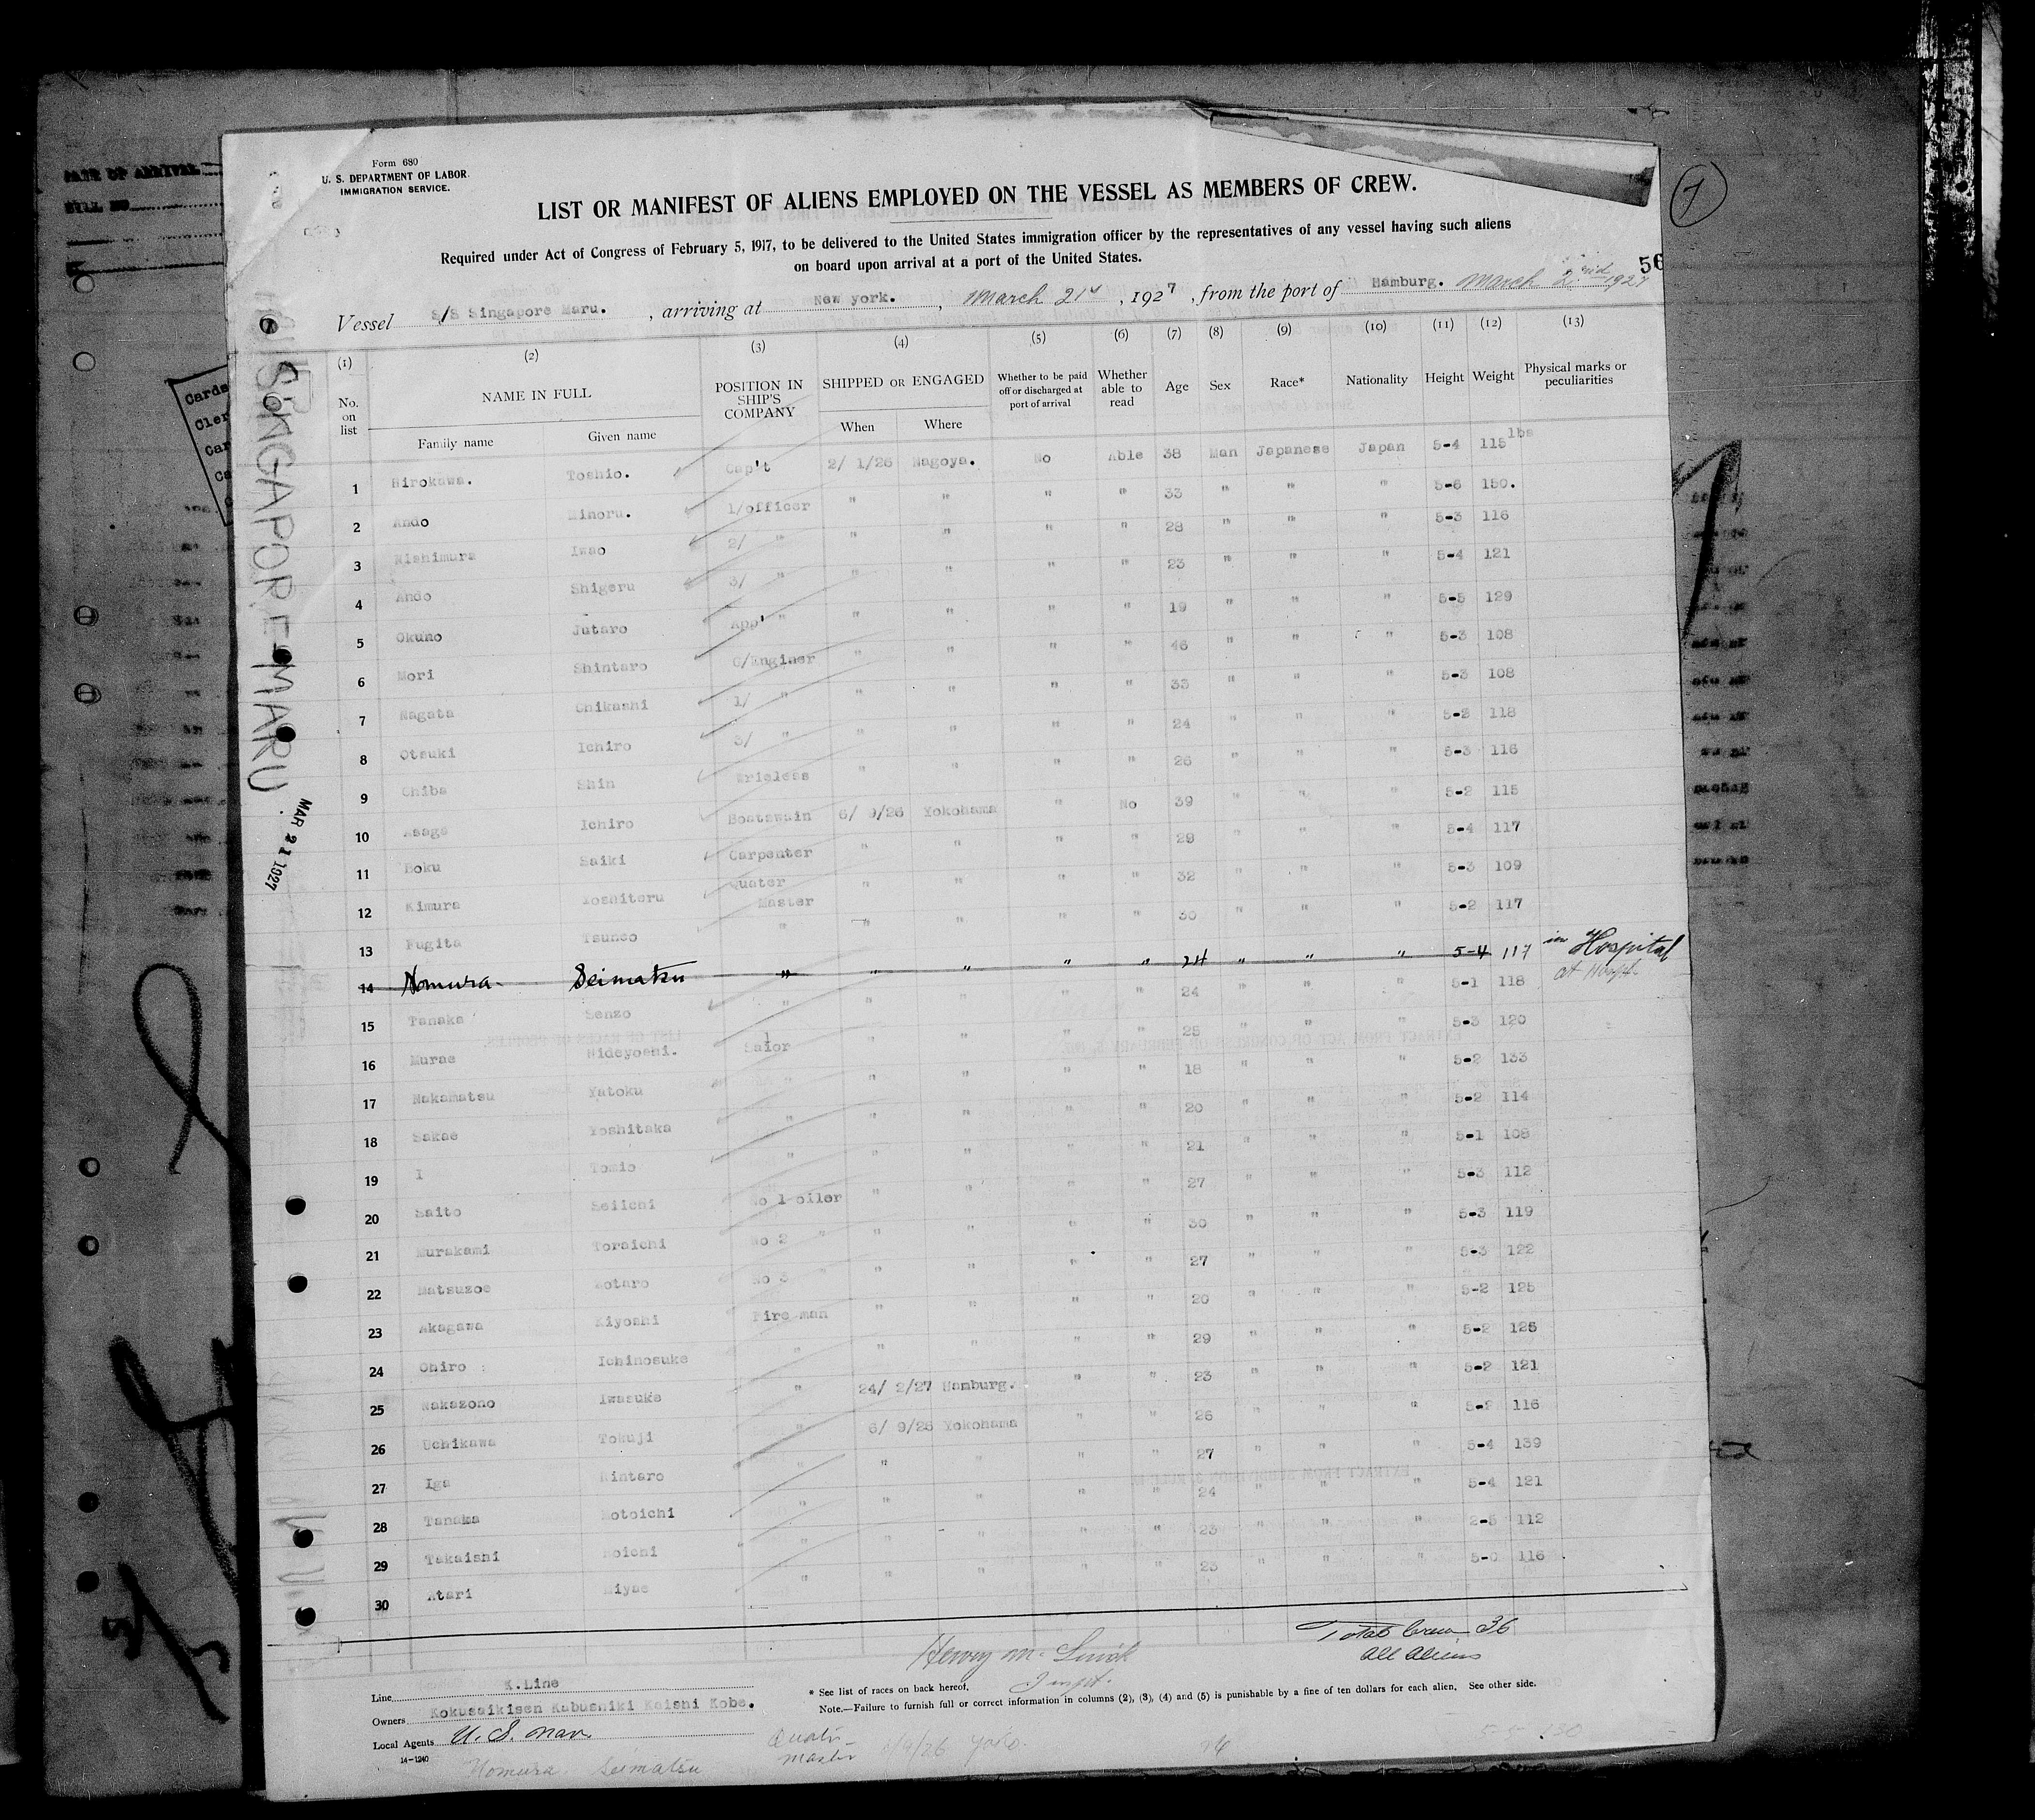 Form 680
U. S. DEPARTMENT OF LABOR
IMMIGRATION SERVICE.
LIST OR MANIFEST OF ALIENS EMPLOYED ON THE VESSEL AS MEMBERS OF CREW.
Required under Act of Congress of February 5, 1917, to be delivered to the United States immigration officer by the representatives of any vessel having such aliens
on board upon arrival at a port of the United States.
56
Vessel S/S Singapore Maru. , arriving at New york. , March 21st , 1927 , from the port of Hamburg. March 2nd 1927
(1) (2) (3) (4) (5) (6) (7) (8) (9) (10) (11) (12) (13)
No. on list NAME IN FULL Family name Given name POSITION IN SHIP'S COMPANY SHIPPED OR ENGAGED When Where Whether to be paid off or discharged at port of arrival Whether able to read Age Sex Race* Nationality Height Weight Physical marks or peculiarities
1 Hirokawa. Toshio. Cap't 2/ 1/26 Nagoya. No Able 38 Man Japanese Japan 5-4 115 lbs
2 Ando Minoru. 1/officer " " " " 33 " " " 5-6 150.
3 Nishimura Iwao 2/ " " " " " 28 " " " 5-3 116
4 Ando Shigeru 3/ " " " " " 23 " " " 5-4 121
5 Okuno Jutaro App' " " " " " 19 " " " 5-5 129
6 Mori Shintaro C/Enginer " " " " 46 " " " 5-3 108
7 Nagata Chikashi 1/ " " " " " 33 " " " 5-3 108
8 Otsuki Ichiro 3/ " " " " " 24 " " " 5-2 118
9 Chiba Shin Wrieless " " " " 26 " " " 5-3 116
10 Asage Ichiro Boatswain 6/ 9/26 Yokohama " No 39 " " " 5-2 115
11 Boku Saiki Carpenter " " " " 29 " " " 5-4 117
12 Kimura Yoshiteru Quater Master " " " " 32 " " " 5-3 109
13 Fugita Tsuneo " " " " " 30 " " " 5-2 117
14 Nomura Seimatsu " " " " " 24 " " " 5-4 117 in Hospital
at Hospt.
15 Tanaka Senzo " " " " 24 " " " 5-1 118
16 Murae Hideyoshi. Salor " " " " 25 " " " 5-3 120
17 Nakamatsu Yatoku " " " " " 18 " " " 5-2 133
18 Sakae Yoshitaka " " " " " 20 " " " 5-2 114
19 I Tomio " " " " 21 " " " 5-1 108
20 Saito Seiichi No 1 oiler " " " " 27 " " " 5-3 112
21 Murakami Toraichi No 2 " " " " " 30 " " " 5-3 119
22 Matsuzoe Kotaro No 3 " " " " " 27 " " " 5-3 122
23 Akagawa Kiyoshi Fire man " " " " 20 " " " 5-2 125
24 Ohiro Ichinosuke " " " " " 29 " " " 5-2 125
25 Nakazono Iwasuke " 24/ 2/27 Hamburg. " " 23 " " " 5-2 121
26 Uchikawa Tokuji " 6/ 9/26 Yokohama " " 26 " " " 5-2 116
27 Iga Rintaro " " " " " 27 " " " 5-4 139
28 Tanaka Motoichi " " " " " 24 " " " 5-4 121
29 Takaishi Koichi " " " " " 23 " " " 2-5 112
30 Atari Miyae " " " " " 23 " " " 5-0 116
Total Crew 36
All Aliens
Line K.Line
Owners Kokusaikisen Kabushiki Kaishi Kobe.
Local Agents U. S. Nav.
14-1240
* See list of races on back hereof.
Note.—Failure to furnish full or correct information in columns (2), (3), (4) and (5) is punishable by a fine of ten dollars for each alien. See other side.
Nomura Seimatsu Quatr- master 6/9/26 Yoko. 24 5-5 130
SINGAPORE MARU
MAR 21 1927
DATE OF ARRIVAL